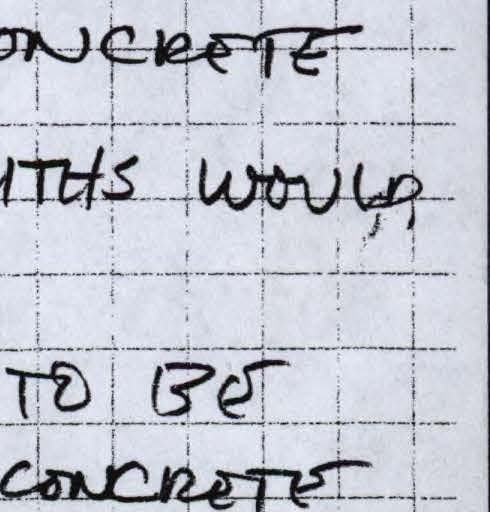 ONCRETE
ITHS WOULD,
TO BE
CONCRETE